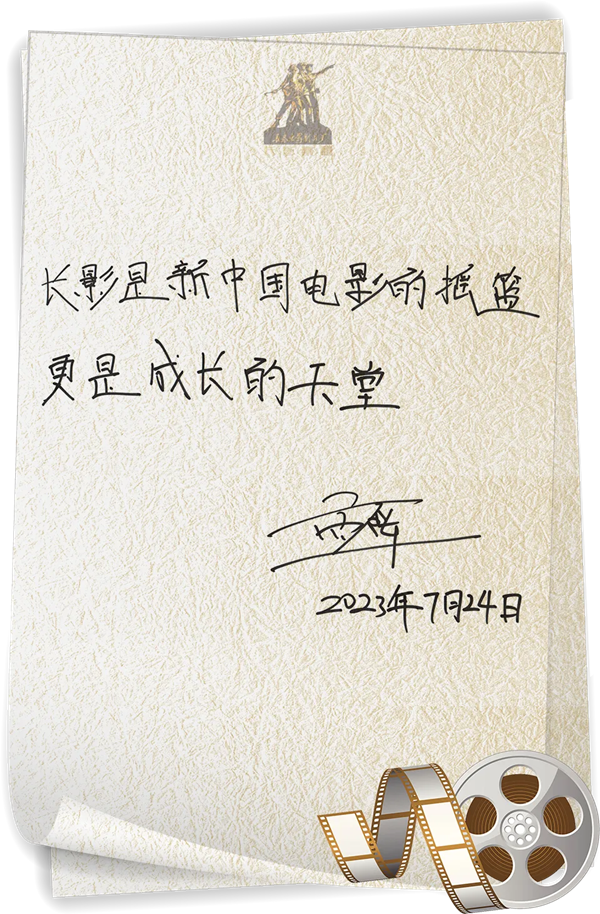 长影是新中国电影的摇篮
更是成长的天堂
2023年7月24日